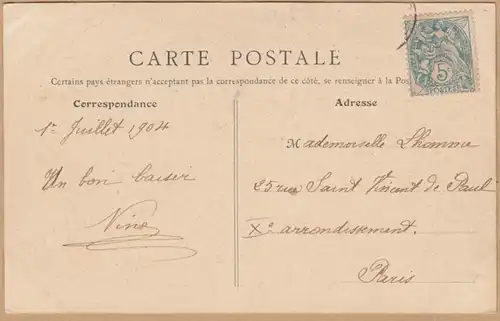 CARTE POSTALE
Certains pays étrangers n'acceptant pas la correspondance de ce côté, se renseigner à la Pos
Correspondance
1er Juillet 1904
Un bon baiser
Nine
Adresse
Mademoiselle Lhomme
25 rue Saint Vincent de Paul
Xe arrondissement.
Paris
5
POSTES